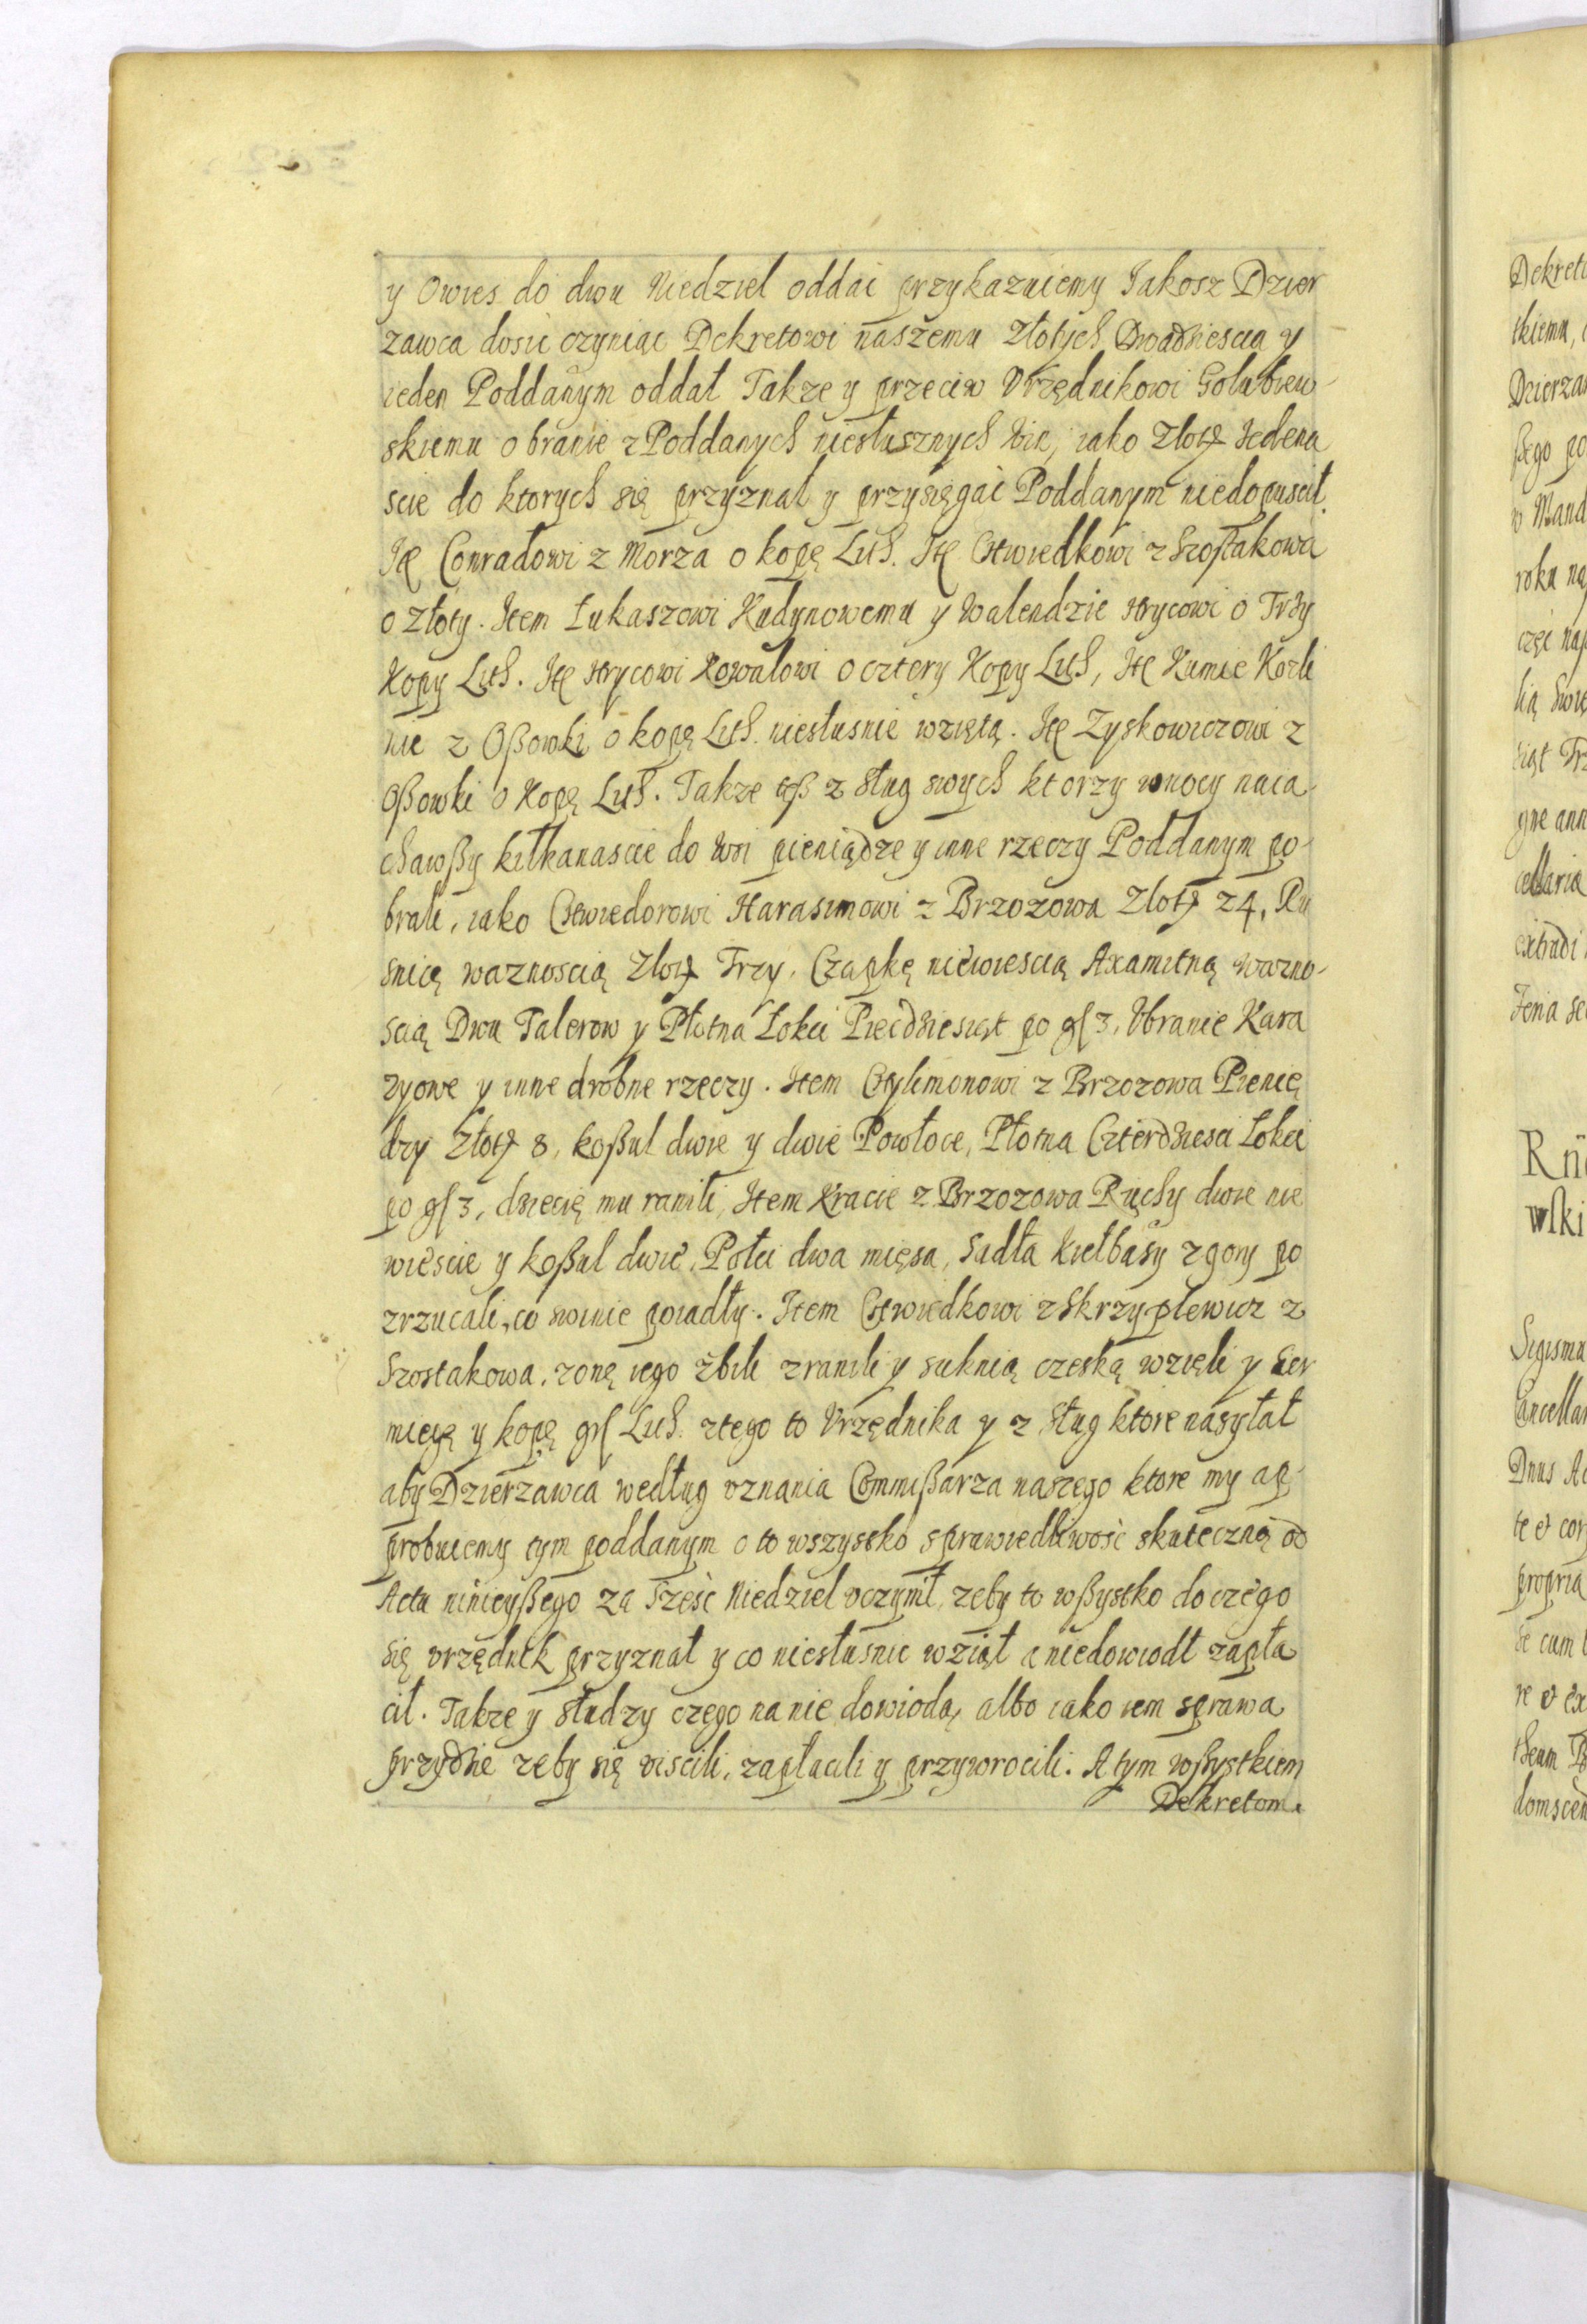 y Owies do dwu Niedziel oddać przykazuiemy Jakosz Dzier
zawca dosić czyniąc Dekretowi naszemu Złotych Dwadzieścia y
ieden Poddanym oddał Takze y przeciw Urzędnikowi Gołubiew-
skiemu o branie z Poddanych niesłusznych Win, iako Złotꝶ Jedena
scie do ktorych się przyznał y przysięgać Poddanym niedopuscił.
Itē Conradowi z Morza o kopę Lith. Itē Chwiedkowi z Szostakowa
o Złoty. Item Łukaszowi Kudynowemu y Walendzie Hrycowi o Trzy
Kopy Lith. Itē Hrycowi Kowalowi o cztery Kopy Lith, Itē Kumie Kozli
nie z Oßowki o kopę Lith. niesłusnie wziętą. Itē Zyskowiczowi z
Oßowki o Kopę Lith. Takze teß z sług swych ktorzy wnocy naia-
chawßy kilkanascie do Wsi pieniądze y inne rzeczy Poddanym po-
brali, iako Chwiedorowi Harasimowi z Brzozowa Złotꝶ 24, Ru
snicę waznoscią Złotꝶ Trzy, Czapkę niewiescią Axamitną wazno-
scią Dwu Talerow y Płotna Łokci Piećdziesiąt po gß 3, Ubranie Kara
zyowe y inne drobne rzeczy. Item Chylimonowi z Brzozowa Pienię
dzy Złotꝶ 8, koßul dwie y dwie Powłoce, Płotna Czterdziesci Łokci
po gß 3, dziecię mu ranili, Item Kracie z Brzozowa Ruchy dwie nie
wieście y koßul dwie, Połci dwa mięsa, Sadła kiełbasy zgory po
zrzucali, co swinie poiadły. Item Chwiedkowi z Skrzyplewicz z
Szostakowa, zonę iego zbili zranili y suknią czeską wzięli y Ser
mięgę y kopę grß Lith. ztego to Urzędnika y z Sług ktore nasyłał
aby Dzierzawca według uznania Commißarza naszego ktore my ap-
probuiemy tym poddanym o to wszystko sprawiedliwość skuteczną od
Actu ninieyßego za Sześć Niedziel uczynił, zeby to wßystko do czego
się urzędnik przyznał y co niesłusnie wziął a niedowiodł zapła
cił. Takze y słudzy czego na nie dowiodą, albo iako iem sprawa
przydzie zeby się uiscili, zapłacili y przywrocili. A tym wßystkiem
Dekretom.